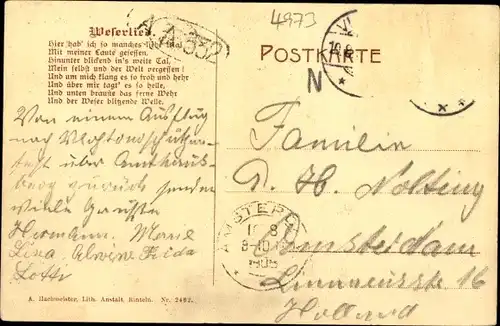 4973
A.A.332
Weserlied.
POSTKARTE
Hier hab' ich so manches liebe Mal
Mit meiner Laute gesessen,
Hinunter blickend in's weite Tal,
Mein selbst und der Welt vergessen!
Und um mich klang es so froh und hehr
Und über mir tagt' es so helle,
Und unten brauste das ferne Wehr
Und der Weser blitzende Welle.
N
Von einem Ausflug
nach
über
zurück senden
viele Grüsse
Hermann. Marie
Lina. Alwine Frida
Familie
P. H. Nolting
AMSTERDAM
Amsterdam
Linnaeusstr 16
Holland
A. Hackmeister, Lith. Anstalt, Rinteln. Nr. 2482.